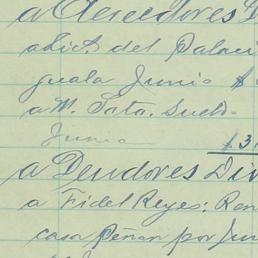 a Acreedores D
a Lict. del Palaci
guala Junio $
a M. Sata. Sueld.
Junio $3
a Deudores Div
a Fidel Reyes: Ren
casa Peñon por Jun